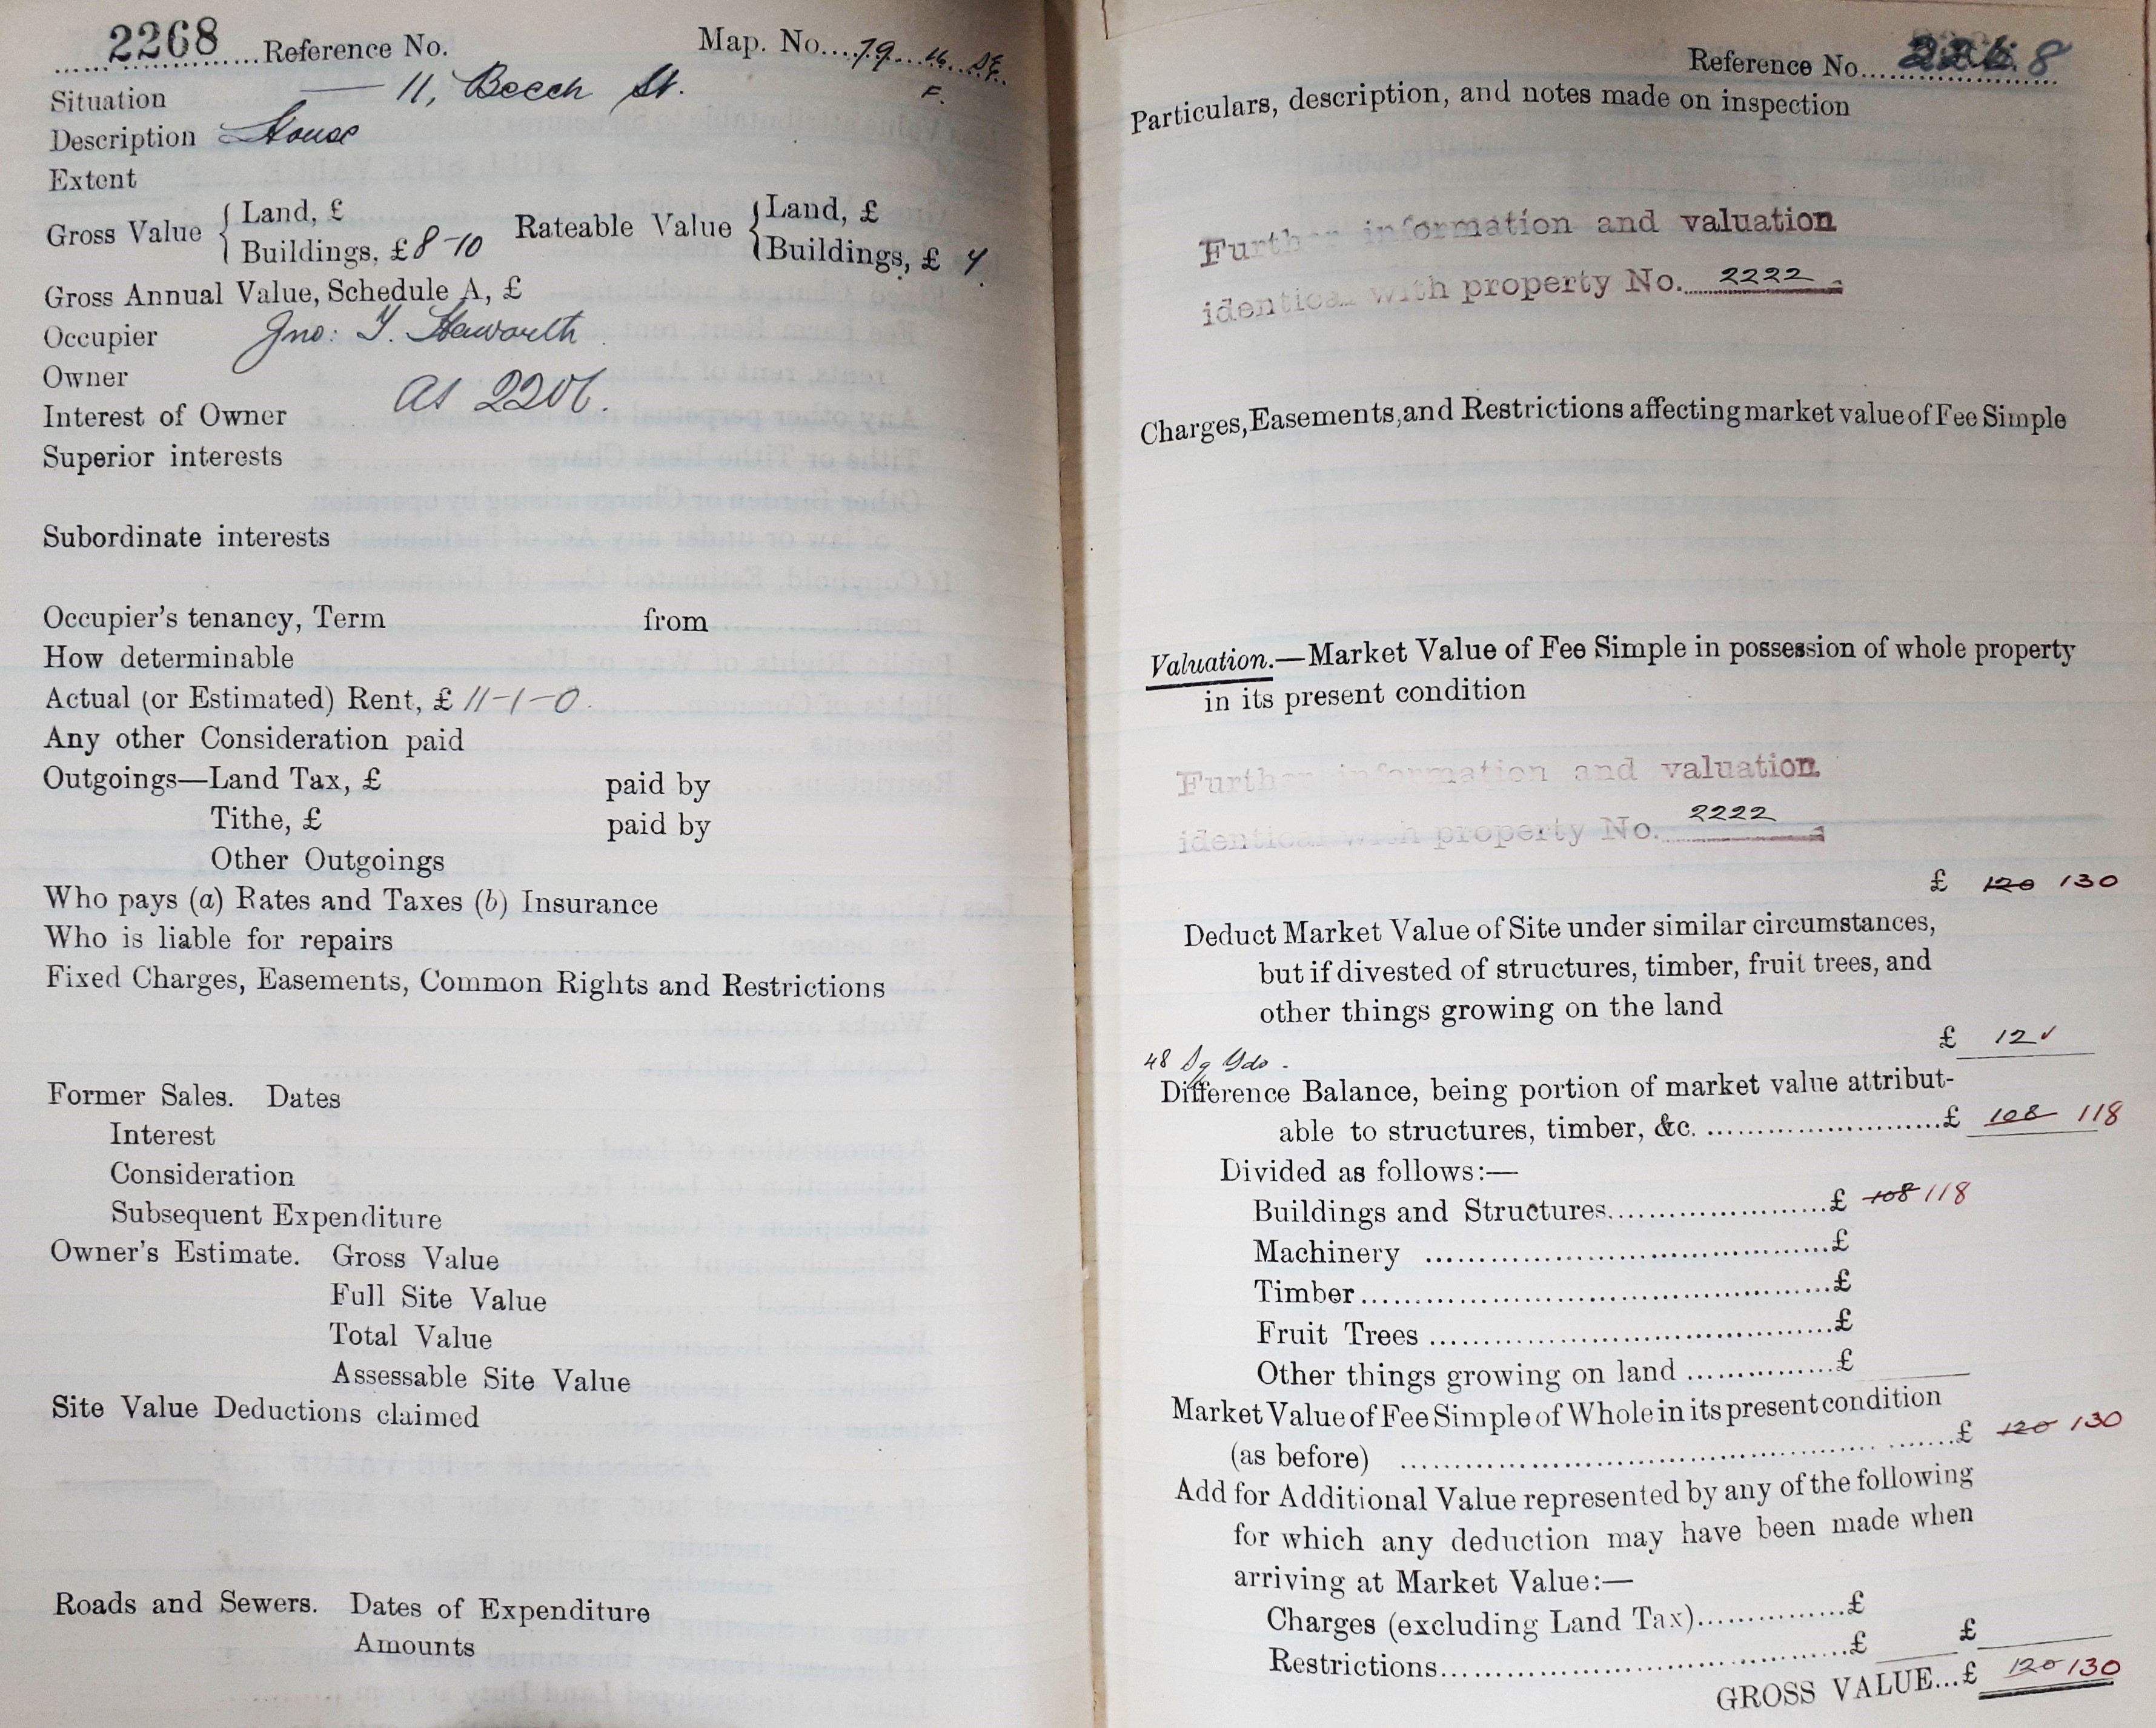 2268 Reference No. Map. No. 79 16 SE
F.
Situation — 11, Beech St.
Description House
Extent
Gross Value { Land, £
Buildings, £ 8-10
Rateable Value { Land, £
Buildings, £
Gross Annual Value, Schedule A, £
Occupier Jno: T. Haworth
Owner
As 2206.
Interest of Owner
Superior interests
Subordinate interests
Occupier's tenancy, Term from
How determinable
Actual (or Estimated) Rent, £ 11-1-0
Any other Consideration paid
Outgoings—Land Tax, £ paid by
Tithe, £ paid by
Other Outgoings
Who pays (a) Rates and Taxes (b) Insurance
Who is liable for repairs
Fixed Charges, Easements, Common Rights and Restrictions
Former Sales. Dates
Interest
Consideration
Subsequent Expenditure
Owner's Estimate. Gross Value
Full Site Value
Total Value
Assessable Site Value
Site Value Deductions claimed
Roads and Sewers. Dates of Expenditure
Amounts
Reference No. 2268
Particulars, description, and notes made on inspection
Further information and valuation
identical with property No. 2222
Charges, Easements, and Restrictions affecting market value of Fee Simple
Valuation.—Market Value of Fee Simple in possession of whole property
in its present condition
Further information and valuation
identical with property No. 2222
£ 120 130
Deduct Market Value of Site under similar circumstances,
but if divested of structures, timber, fruit trees, and
other things growing on the land
£ 12 ✓
48 Sq Yds.
Difference Balance, being portion of market value attribut-
able to structures, timber, &c. £ 108 118
Divided as follows:—
Buildings and Structures £ 108 118
Machinery £
Timber £
Fruit Trees £
Other things growing on land £
Market Value of Fee Simple of Whole in its present condition
(as before) £ 120 130
Add for Additional Value represented by any of the following
for which any deduction may have been made when
arriving at Market Value:—
Charges (excluding Land Tax) £
Restrictions £ £
GROSS VALUE... £ 120 130